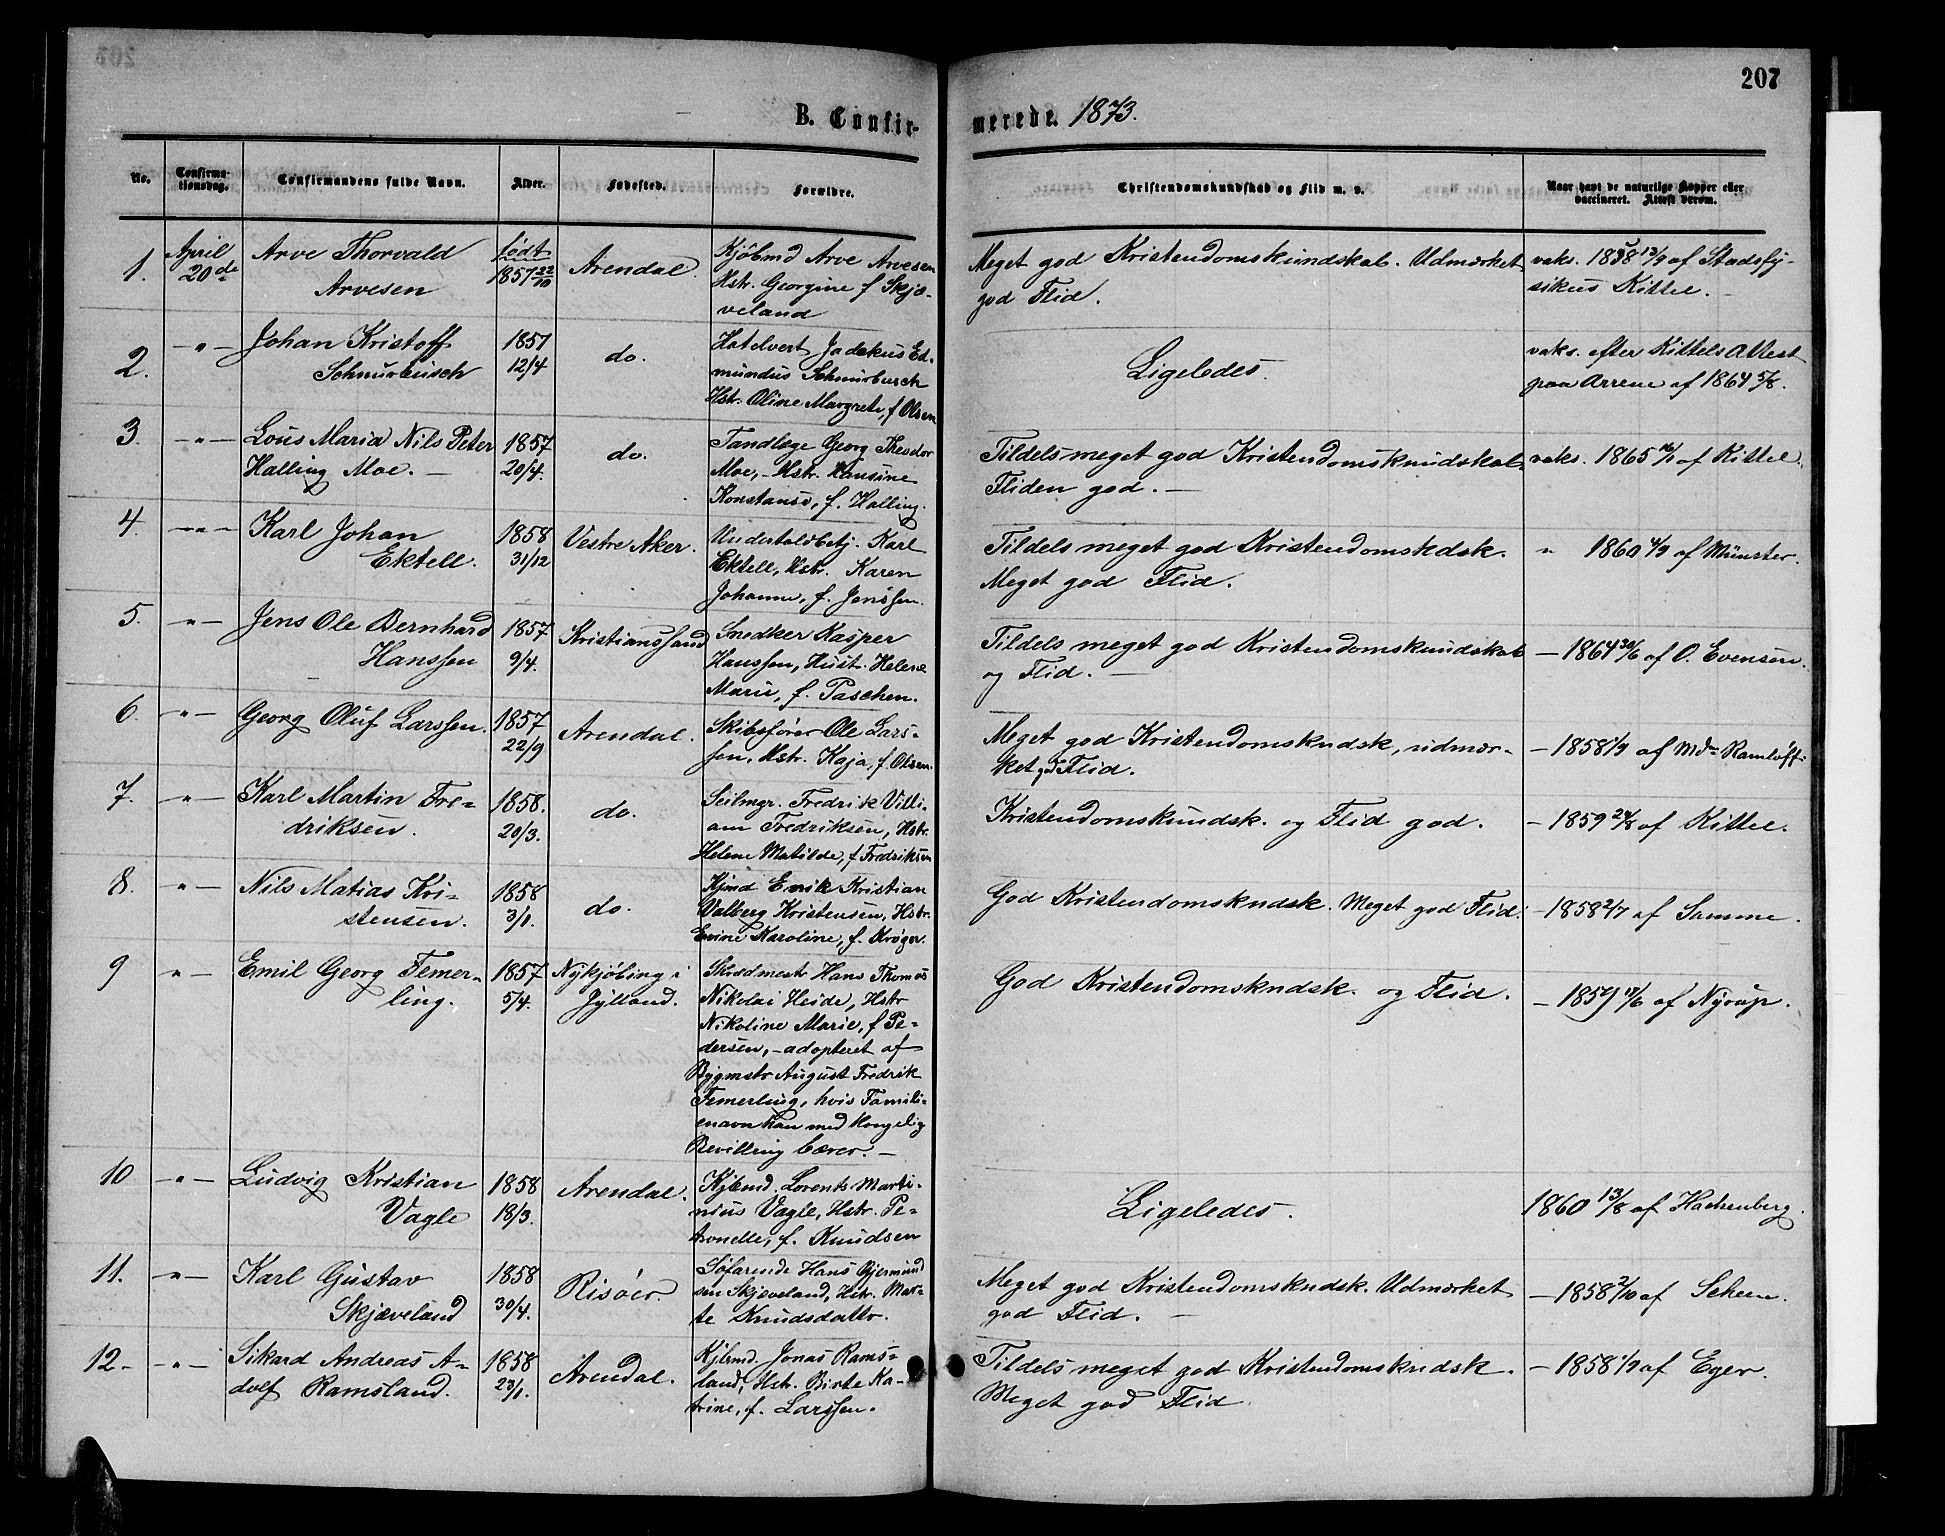 207
B. Confirmerede. 1873.
No. Confirmationsdag. Confirmandens fulde Navn. Alder. Fødested. Forældre. Christendomskundskab og Flid m. v. Naar havt de naturlige Kopper eller vaccineret. Attest derom.
1. April 20de Arve Thorvald Arvesen født 1857 22/10 Arendal.
Kjöbmd Arve Arvesen
Hstr. Georgine f. Skjæ-
veland
Meget god Kristendomskundskab. Udmærket
god Flid.
vaks. 1858 13/9 af Stadsfy-
sikus Kittel. -
2. -"- Johan Kristoff
Schnurbusch
1857
12/4
do.
Hotelvert Jodokus Ed-
mundus Schnurbusch
Hstr. Oline Margrete, f. Olsen
Ligeledes.
vaks. efter Kittels Attest
paa Arrene af 1864 5/8.
3. -"- Lous Maria Nils Peter
Halling Moe. -
1857
20/4.
do.
Tandlæge Georg Theodor
Moe, - Hstr. Hansine
Konstanse, f. Halling.
Tildels meget god Kristendomskundskab
Fliden god. -
vaks. 1865 16/1 af Kittel.
4. -"- Karl Johan
Ektell.
1858
31/12
Vestre Aker.
Undertoldbetj. Karl
Ektell, Hstr. Karen
Johanne, f. Jonssen.
Tildels meget god Kristendomskdsk.
Meget god Flid.
" 1860 4/9 af Münster.
5. -"- Jens Ole Bernhard
Hanssen
1857
9/4.
Kristianssand
Snedker Kasper
Hanssen, Hust. Helene
Marie, f. Paschen.
Tildels meget god Kristendomskundskab
og Flid. -
- 1864 30/6 af O. Evensen.
6. "- Georg Oluf Larssen.
1857
22/9
Arendal.
Skibsfører Ole Lars-
sen, Hstr. Kaja, f. Olsen.
Meget god Kristendomskndsk, udmær-
ket god Flid.
- 1858 1/9 af Mdm Ramlöff.
7. -"- Karl Martin Fre-
driksen.
1858.
20/3.
do.
Seilmgr. Fredrik Villi-
am Fredriksen, Hstr.
Helene Matilde, f. Fredriksen
Kristendomskundsk. og Flid god.
- 1859 24/8 af Kittel.
8. "- Nils Matias Kri-
stensen.
1858
3/1.
do.
Kjmd Enik Kristian
Valberg Kristensen, Hstr.
Evine Karoline, f. Krøger.
God Kristendomskndsk. Meget god Flid.
- 1858 2/7 af Samme.
9 "- Emil Georg Femer-
ling.
1857
5/4.
Nykjöbing i
Jylland.
Skrædmestr Hans Thomas
Nikolai Heide, Hstr
Nikoline Marie, f Pe-
dersen, - adopteret af
Bygmstr August Fredrik
Femerling, hvis Famili-
enavn han med Kongelig
Bevilling bærer. -
God Kristendomskndsk. og Flid.
- 1859 17/6 af Nyrup.
10 -"- Ludvig Kristian
Vagle
1858
18/3.
Arendal.
Kjbmd. Lorents Marti-
nius Vagle, Hstr. Pe-
tronelle, f. Knudsen
Ligeledes.
1860 13/8 af Hachenberg.
11. -"- Karl Gustav
Skjæveland
1858
30/4.
Risöer.
Søfarende Hans Gjermund
sen Skjæveland, Hstr. Mar-
te Knudsdatter.
Meget god Kristendomskndsk. Udmærket
god Flid. -
- 1858 2/10 af Scheen.
12- -"- Sikard Andreas A-
dolf Ramsland.
1858
23/1.
Arendal.
Kjbmd. Jonas Rams-
land, Hstr. Birte Ka-
trine, f. Larssen.
Tildels meget god Kristendomskndsk.
Meget god Flid.
- 1858 1/9 af Eger.